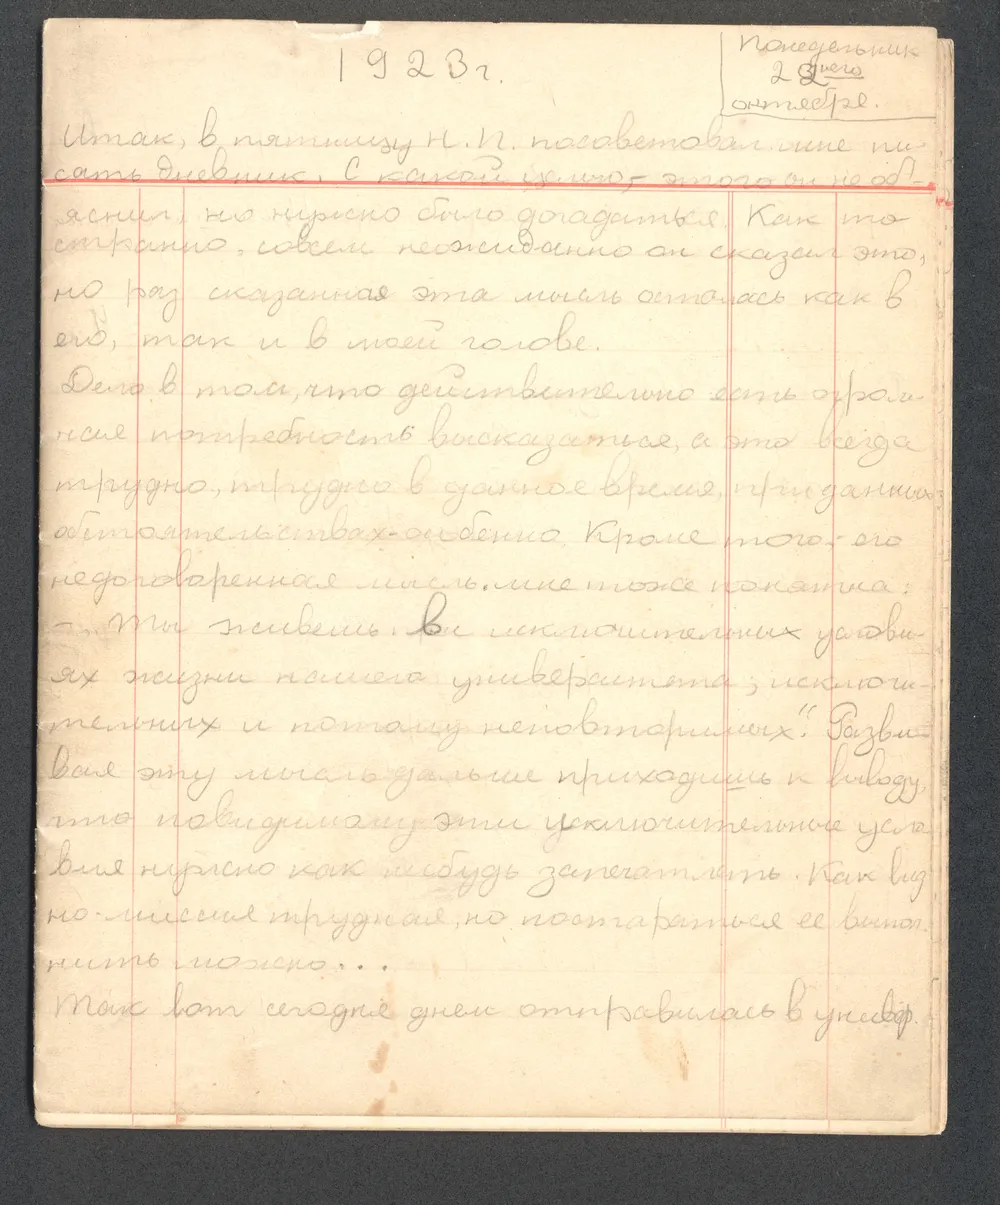 1923 г.
Понедельник
22него
октября.
Итак, в пятницу Н. П. посоветовал мне пи-
сать дневник. С какой целью, этого он не об-
яснил, но нужно было догадаться. Как то
странно, совсем неожиданно он сказал это,
но раз сказанная эта мысль осталась как в
его, так и в моей голове.
Дело в том, что действительно есть огром-
ная потребность высказаться, а это всегда
трудно, трудно в данное время, при данных
обстоятельствах-особенно. Кроме того,- его
недоговоренная мысль мне тоже понятна:
- Ты живешь в исключительных услови-
ях жизни нашего университета; исключи-
тельных и потому неповторимых". Разви-
вая эту мысль дальше приходишь к выводу,
что повидимому эти исключительные усло
вия нужно как нибудь запечатлеть. Как вид
но-миссия трудная, но постараться ее выпол-
нить можно...
Так вот сегодня днем отправилась в универ.